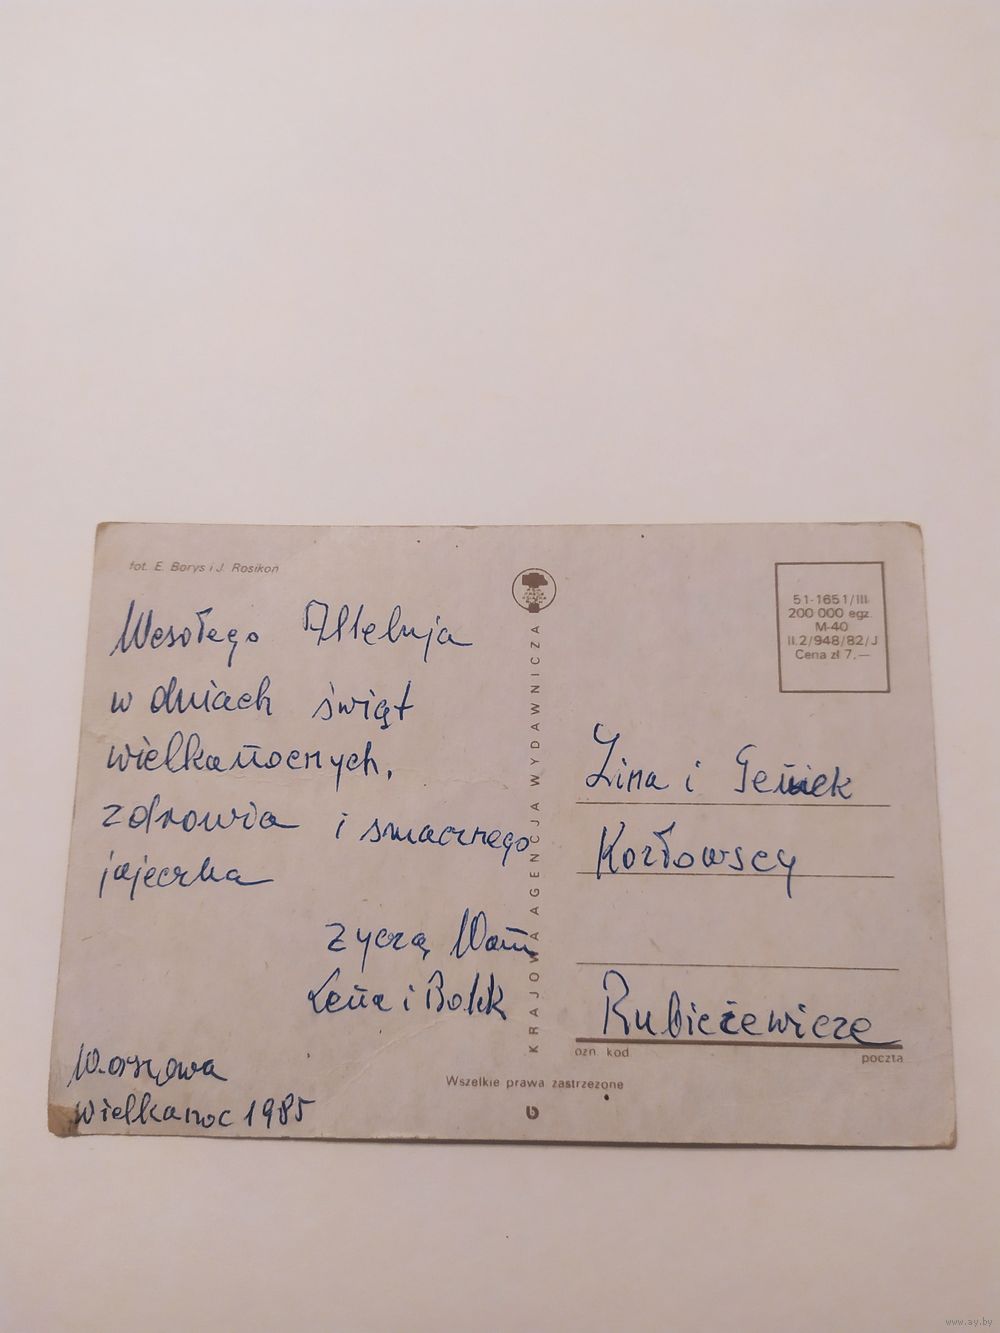 fot. E. Borys i J. Rosikoń
Wesołego Alleluja
w dniach świąt
wielkanocnych,
zdrowia i smacznego
jajeczka
życzą Wam
Lena i Bolek
Warszawa
Wielkanoc 1985
KRAJOWA AGENCJA WYDAWNICZA
51-1651/III
200 000 egz.
M-40
II.2/948/82/J
Cena zł 7,—
Zina i Geniek
Kozłowscy
Rubieżewicze
ozn. kod
poczta
Wszelkie prawa zastrzeżone
www.ay.by